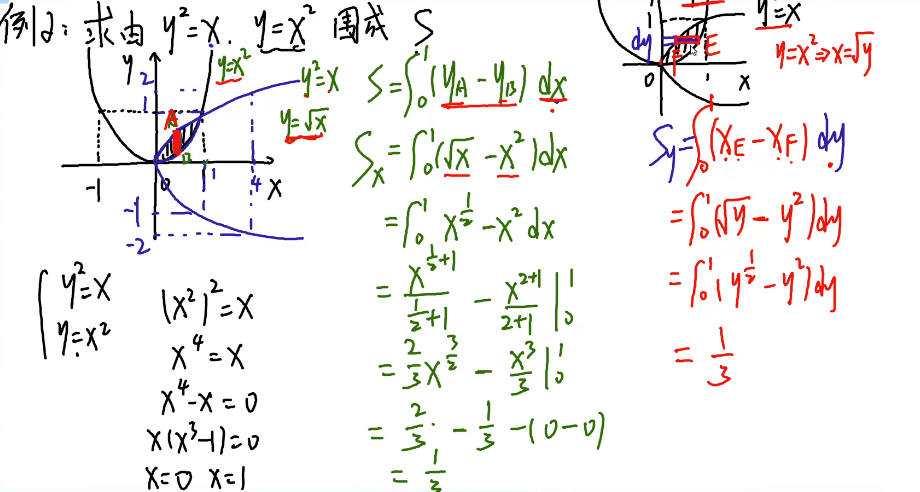 例2: 求由 y²=x. y=x² 围成 S
y
2
1
y=x²
y²=x
y=√x
A
B
-1
0
1
4
x
-1
-2
{ y²=x
y=x²
(x²)²=x
x⁴=x
x⁴-x=0
x(x³-1)=0
x=0 x=1
S=∫₀¹(y_A-y_B)dx
Sₓ=∫₀¹(√x-x²)dx
=∫₀¹ x^{1/2}-x²dx
= x^{1/2+1}/(1/2+1) - x^{2+1}/(2+1) |₀¹
= 2/3 x^{3/2} - x³/3 |₀¹
= 2/3 - 1/3 -(0-0)
= 1/3
y²=x
dy
F
E
0
1
x
y=x²⇒x=√y
S_y=∫₀¹(x_E-x_F)dy
=∫₀¹(√y-y²)dy
=∫₀¹(y^{1/2}-y²)dy
= 1/3